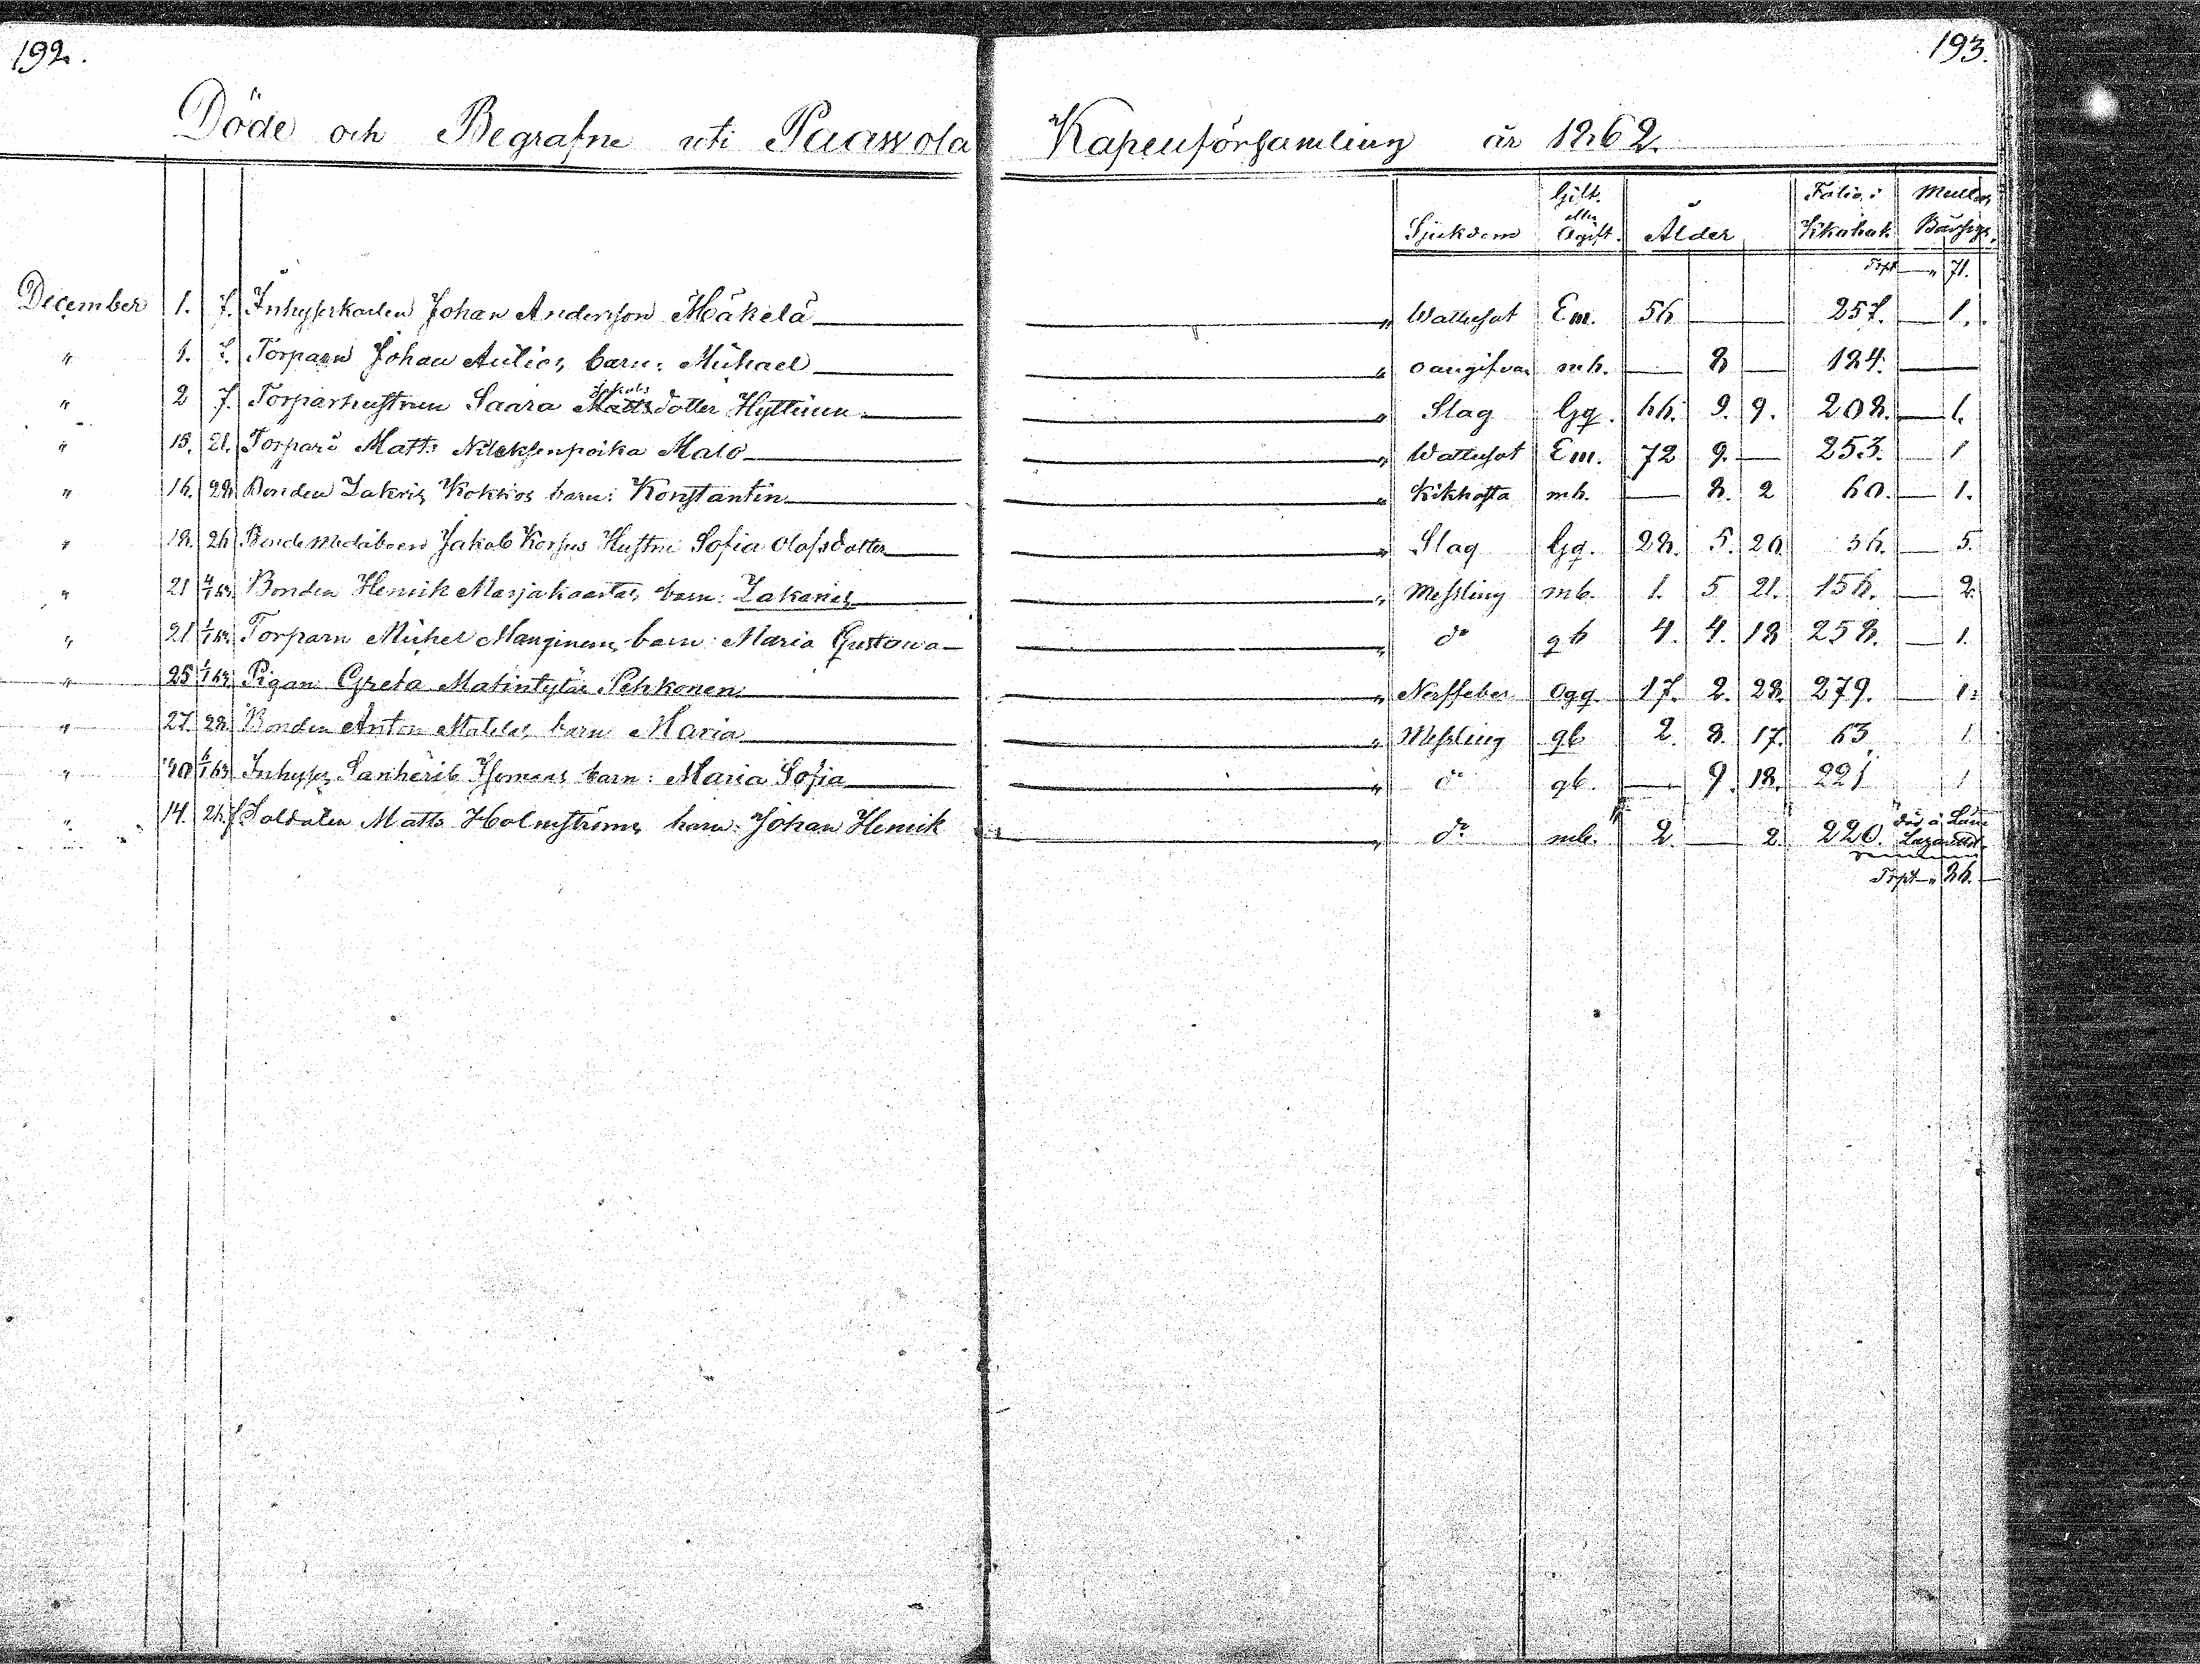 192.
193.
Döde och Begrafne uti Paawola Kapellförsamling år 1862.
Sjukdom Gift eller Ogift. Ålder Folio i Kkobok Mull och Bårhige
Trpt " 71.
December 1. 7. Inhyserkarlen Johan Andersson Mäkelä " Wattusot Em. 56 — — 257. — 1.
" 1. 7. Torparn Johan Aulios barn: Mickael " oangifvan mb. — 8 — 184. —
" 2 7. Torparhustrun Saara Jakobs dotter Hyttinen " Slag Gq. 66. 9. 9. 208. — 1.
" 15. 21. Torparn Matts Nileksenpoika Malo " Wattusot Em. 72 9. — 253. — 1
" 16. 28 Bonden Zakris Kokkos barn: Konstantin " Kikhosta mb. — 8. 2 60. — 1.
" 18. 26 Bonde Jakob Korpus Hustru Sofia Olofsdotter " Slag Gq. 28. 5. 20 36. — 5.
" 21 4/1 63 Bonden Henrik Marjakaartas barn: Zakarias " Messling mb. 1. 5 21. 156. — 2.
" 21 1/1 63 Torparn Michel Manginens barn: Maria Gustawa " do gb 4. 4. 18 258. — 1.
" 25 1/1 63 Pigan Greta Matintytär Pehkonen " Nerffeber Ogq. 17. 2. 28. 279. — 1.
" 27. 28. Bonden Anton barn Maria " Messling gb 2. 8. 17. 63 1
" 30 6/1 63 Inhyses Sanherib barn: Maria Sofia " do gb. — 9. 18. 221 1
" 14. 26. f Soldaten Matts Holmströms barn: Johan Henrik " do mb. 2. — 2. 220. död å Läns Lazarettet
Trpt " 86.